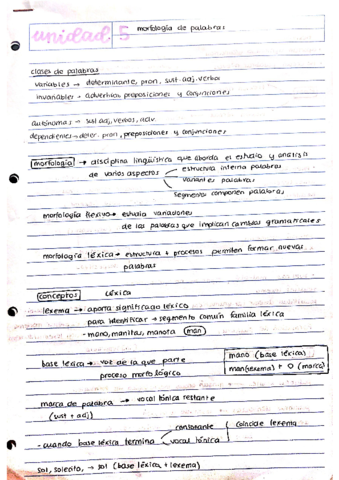 unidad 5 morfología de palabras
clases de palabras
variables → determinante, pron, sust. adj. verbo
invariables → adverbios, preposiciones y conjunciones
autónomas → sust. adj, verbos, adv.
dependientes → deter. pron, preposiciones y conjunciones
morfología → disciplina lingüística que aborda el estudio y analiza
de varios aspectos
estructura interna palabras
variantes palabras
segmentos componen palabras
morfología flexiva → estudia variaciones
de las palabras que implican cambios gramaticales
morfología léxica → estructura + procesos permiten formar nuevas
palabras
conceptos léxica
lexema → aporta significado léxico
para identificar → segmento común familia léxica
- mano, manitas, manota (man)
base léxica → voz de la que parte
proceso morfológico
mano (base léxica)
man(lexema) + o (marca)
marca de palabra → vocal tónica restante
(sust + adj)
- cuando base léxica termina
consonante
vocal tónica
coincide lexema
sol, solecito, → sol (base léxica + lexema)